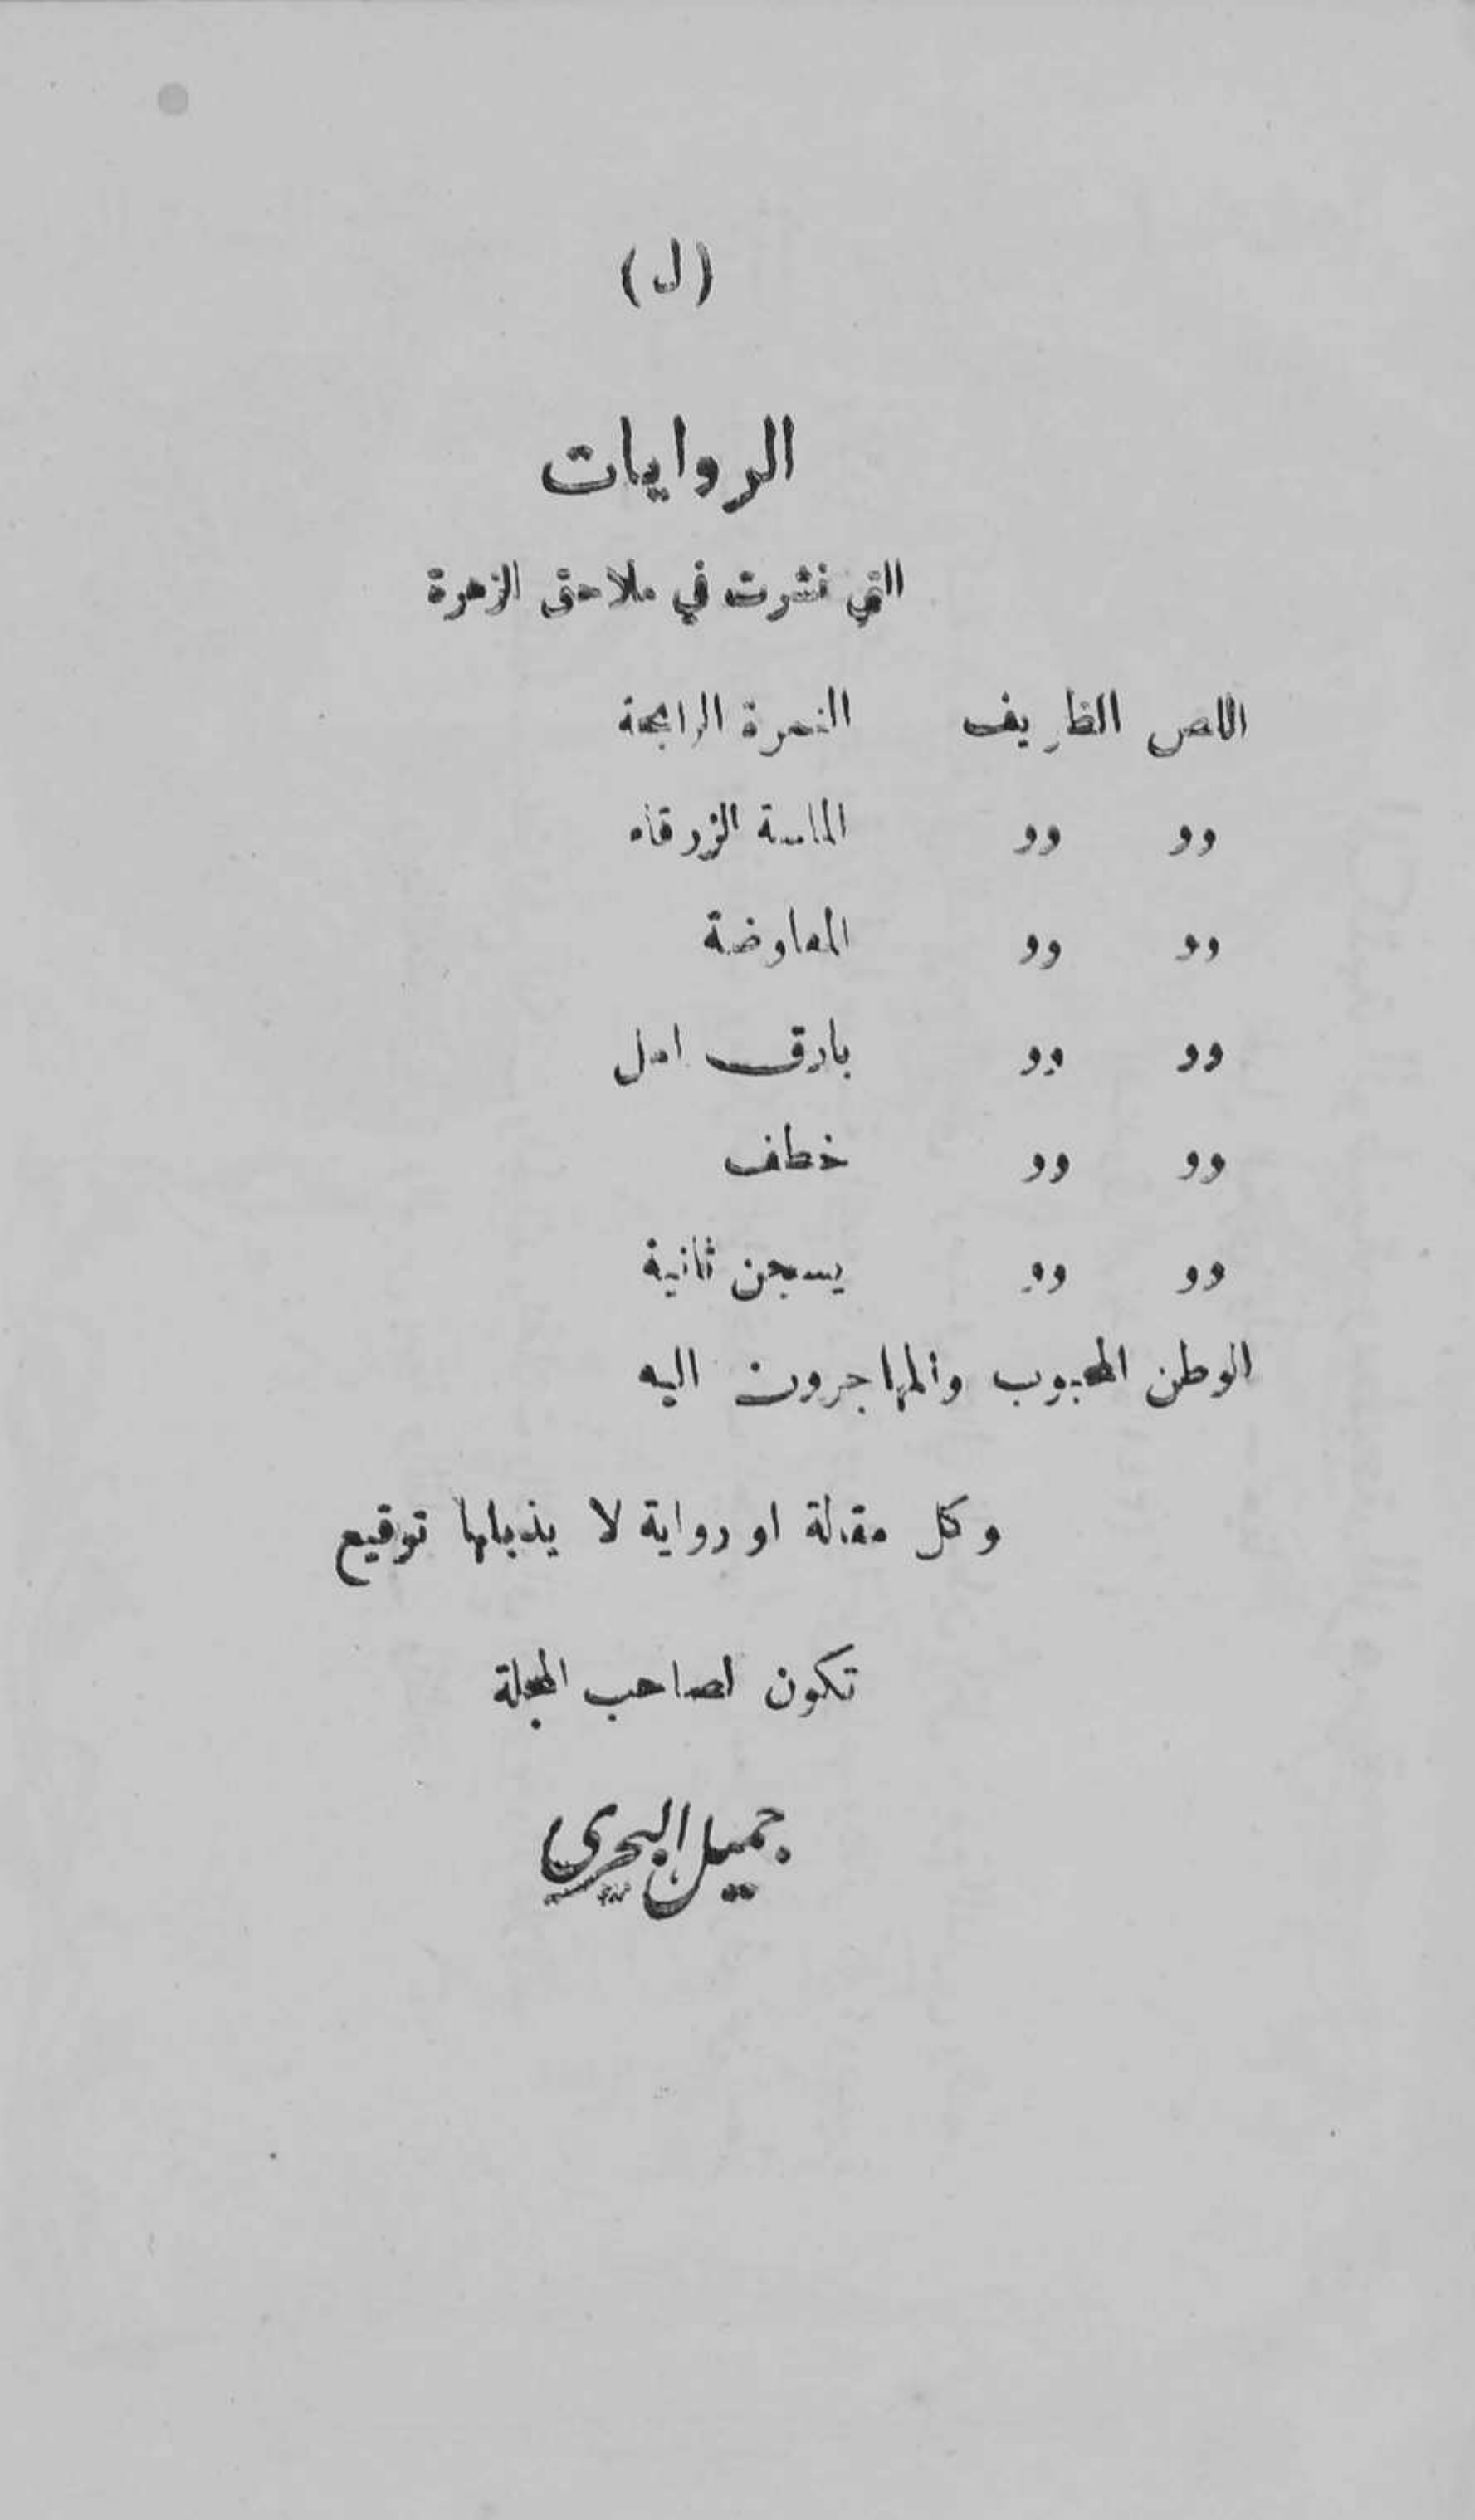 (ل)
الروايات
التي نشرت في ملاحق الزهرة
اللص الظريف النمرة الرابحة
وو وو الماسة الزرقاء
وو وو المعاوضة
وو وو بارق امل
وو وو خطاف
وو وو يسجن ثانية
الوطن المحبوب والمهاجرون اليه
وكل مقالة او رواية لا يذيلها توقيع
تكون لصاحب المجلة
جميل البحري